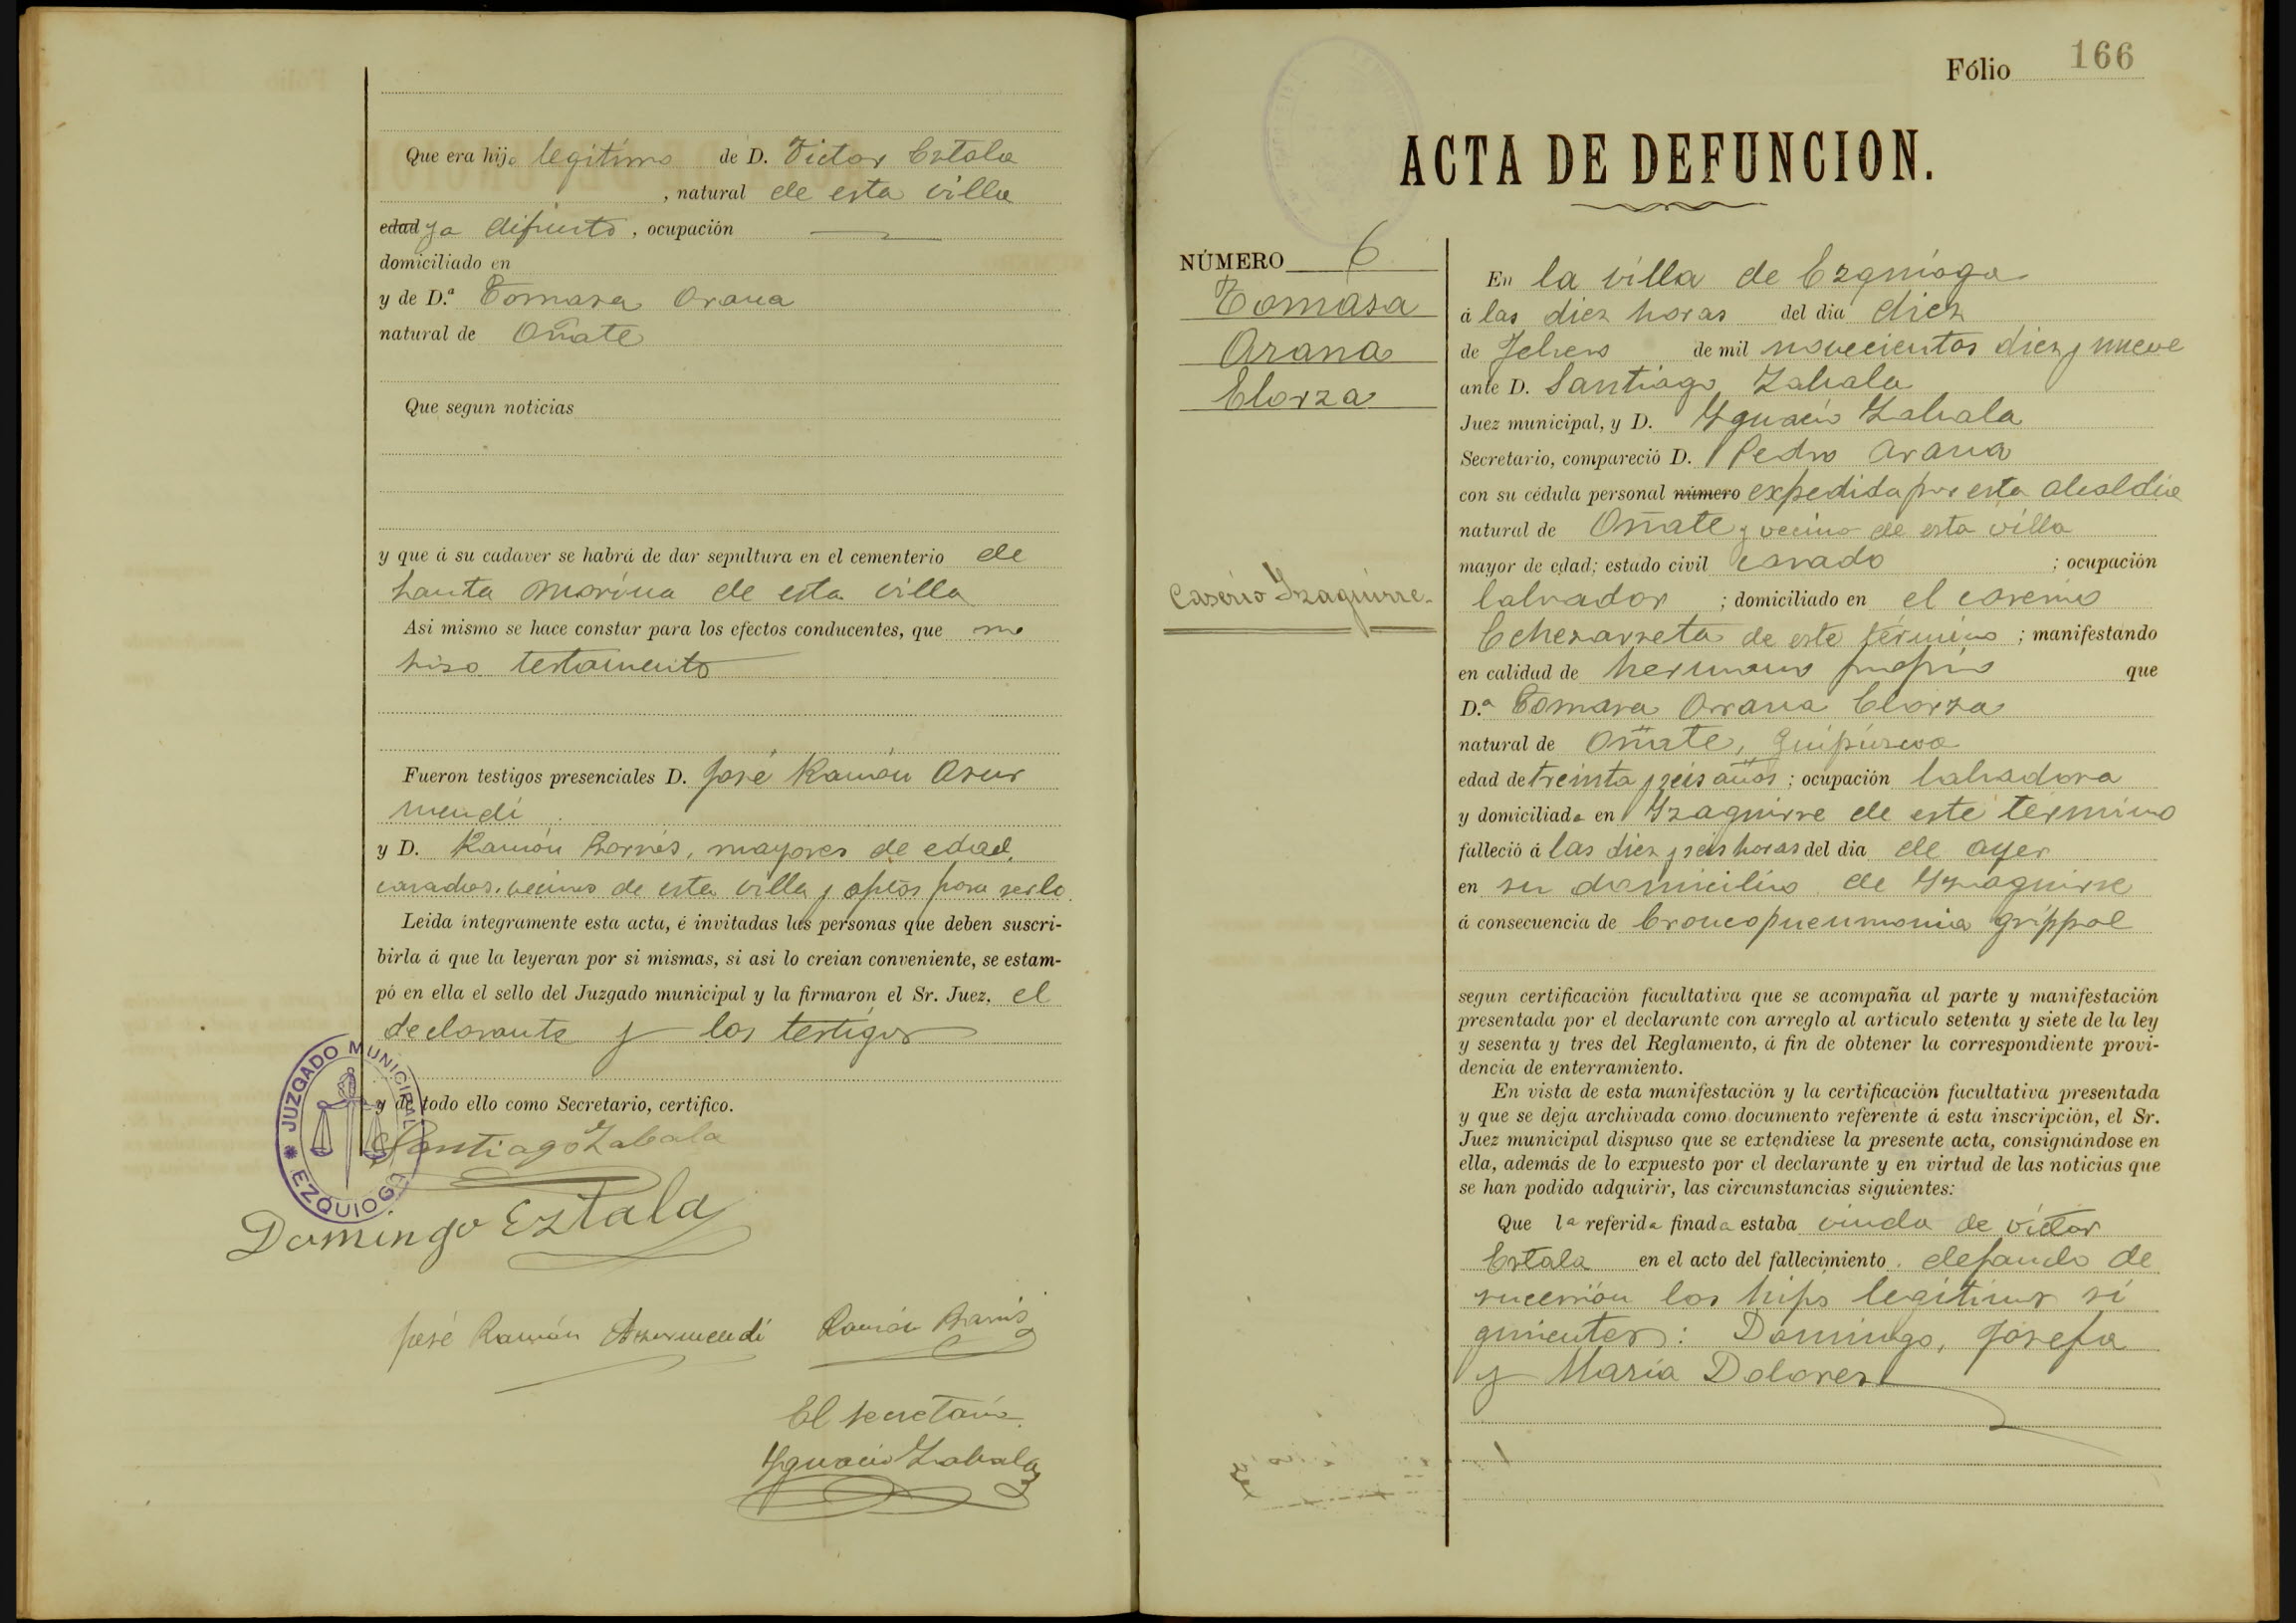 Que era hijo legítimo de D. Victor Eztala
, natural de esta villa
edad ya difunto, ocupación
domiciliado en
y de D.ª Tomasa Arana
natural de Oñate
Que segun noticias
y que á su cadaver se habrá de dar sepultura en el cementerio de
Santa Marina de esta villa
Asi mismo se hace constar para los efectos conducentes, que no
hizo testamento
Fueron testigos presenciales D. José Ramón Azur
mendi
y D. Ramón Barrios, mayores de edad,
casados, vecinos de esta villa y aptos para serlo.
Leida íntegramente esta acta, é invitadas las personas que deben suscri-
birla á que la leyeran por si mismas, si asi lo creian conveniente, se estam-
pó en ella el sello del Juzgado municipal y la firmaron el Sr. Juez, el
declarante y los testigos
y de todo ello como Secretario, certifico.
JUZGADO MUNICIPAL
* EZQUIOGA.
Santiago Zabala
Domingo Eztala
José Ramón Azurmendi Ramón
El secretario
Ygnacio Zabala
Fólio 166
ACTA DE DEFUNCION.
NÚMERO 6
Tomasa
Arana
Elorza
Caserío Yzaguirre.
En la villa de Ezquioga
á las diez horas del dia diez
de Febrero de mil novecientos diez y nueve
ante D. Santiago Zabala
Juez municipal, y D. Ygnacio Zabala
Secretario, compareció D. Pedro Arana
con su cédula personal número expedida por esta alcaldía
natural de Oñate y vecino de esta villa
mayor de edad; estado civil casado ; ocupación
labrador ; domiciliado en el caserío
Echezarreta de este término ; manifestando
en calidad de hermano propio que
D.ª Tomasa Arana Elorza
natural de Oñate, Guipúzcoa
edad de treinta y seis años ; ocupación labradora
y domiciliada en Yzaguirre de este término
falleció á las diez y seis horas del dia de ayer
en su domicilio de Yzaguirre
á consecuencia de broncopneumonia grippal
segun certificación facultativa que se acompaña al parte y manifestación
presentada por el declarante con arreglo al articulo setenta y siete de la ley
y sesenta y tres del Reglamento, á fin de obtener la correspondiente provi-
dencia de enterramiento.
En vista de esta manifestación y la certificación facultativa presentada
y que se deja archivada como documento referente á esta inscripción, el Sr.
Juez municipal dispuso que se extendiese la presente acta, consignándose en
ella, además de lo expuesto por el declarante y en virtud de las noticias que
se han podido adquirir, las circunstancias siguientes:
Que la referida finada estaba viuda de Víctor
Eztala en el acto del fallecimiento, dejando de
sucesión los hijos legítimos si
guientes: Domingo, Josefa
y María Dolores